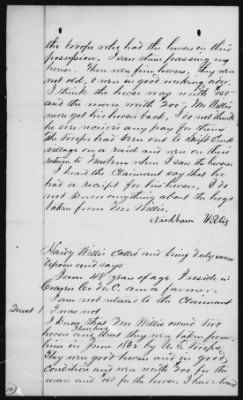 the troops who had the horses in their
possession. I saw them passing my
house. They were fine horses, they were
not old, & were in good working order.
I think the horse was worth 150
and the mare worth 200. Mr Willis
never got his horses back. I do not think
he ever recieved any pay for them
the troops had been out to Swift Creek
village on a raid and were on their
return to when I saw the horses
I heard the Claimant say that he
had a reciept for his horses. I do
not know anything about the hogs
taken from Mr Willis.
Needham
Hardy Willis called and being duly sworn
deposes and says
I am 48 years of age I reside in
Craven Co N.C. am a farmer.
I am not related to the Claimant
Quest 1 I was not
I know that Mr Willis owned two
horses and they were taken from
him in June 1863 by U.S. Troops.
They were good horses and in good
Condition and were worth 200 for the
mare and 150 for the horse. I have heard